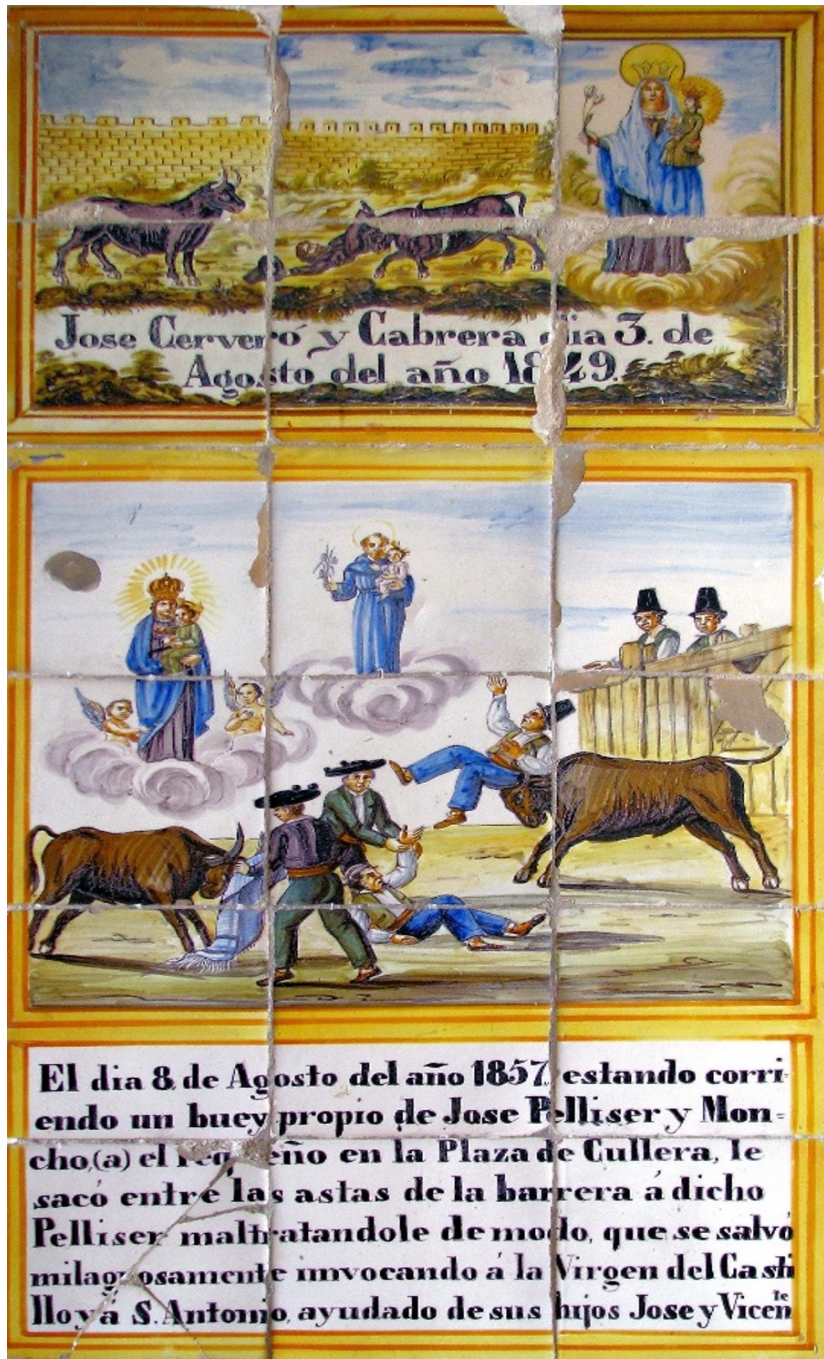 Jose Cerveró y Cabrera dia 3. de
Agosto del año 1849.
El dia 8 de Agosto del año 1857, estando corri-
endo un buey propio de Jose Pelliser y Mon=
cho,(a) el en la Plaza de Cullera, le
sacó entre las astas de la barrera á dicho
Pelliser maltratandole de modo, que se salvó
milagrosamente invocando á la Virgen del Casti
llo y á S. Antonio, ayudado de sus hijos Jose y Vicen^te